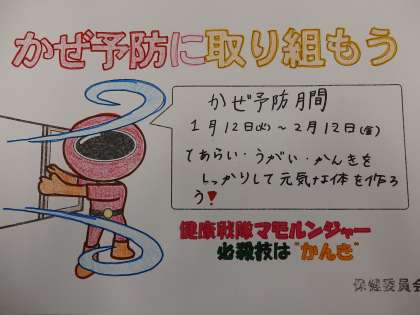 かぜ予防に取り組もう
かぜ予防月間
1月12日(火)~2月12日(金)
てあらい・うがい・かんきを
しっかりして元気な体を作ろ
う!
健康戦隊マモルンジャー
必殺技は"かんき"
保健委員会